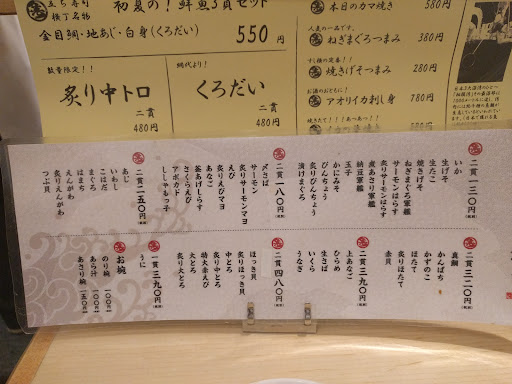 立ち寿司
横丁名物
初夏の！鮮魚3貫セット
金目鯛・地あじ・白身(くろだい) 550円
数量限定！！
炙り中トロ
二貫
480円
網代より！
くろだい
二貫
480円
本日のカマ焼き 580円
人気の一品です。
ねぎまぐろつまみ 380円
すし種の定番！！
焼きげそつまみ 280円
お酒のおともに！
アオリイカ刺し身 780円
焼きたて！！あつあつ！！
二貫一三〇円(税別)
いか
生げそ
生たこ
焼きげそ
ねぎまぐろ軍艦
サーモンはらす
炙りサーモンはらす
煮あさり軍艦
納豆軍艦
玉子
かにみそ
びんちょう
炙りびんちょう
漬けまぐろ
二貫一八〇円(税別)
〆さば
サーモン
炙りサーモンマヨ
えび
炙りえびマヨ
あなご
釜あげしらす
さくらえび
アボカド
ししゃもっ子
二貫二五〇円(税別)
あじ
いわし
こはだ
まぐろ
はまち
えんがわ
炙りえんがわ
つぶ貝
二貫三二〇円(税別)
真鯛
かんぱち
かずのこ
ほたて
炙りほたて
赤貝
二貫三九〇円(税別)
上あなご
ひらめ
生さば
いくら
うなぎ
二貫四八〇円(税別)
ほっき貝
炙りほっき貝
中とろ
炙り中とろ
特大赤えび
大とろ
炙り大とろ
一貫三九〇円(税別)
うに
お椀
のり椀 一〇〇円
あら汁 一〇〇円
あさり椀 一五〇円